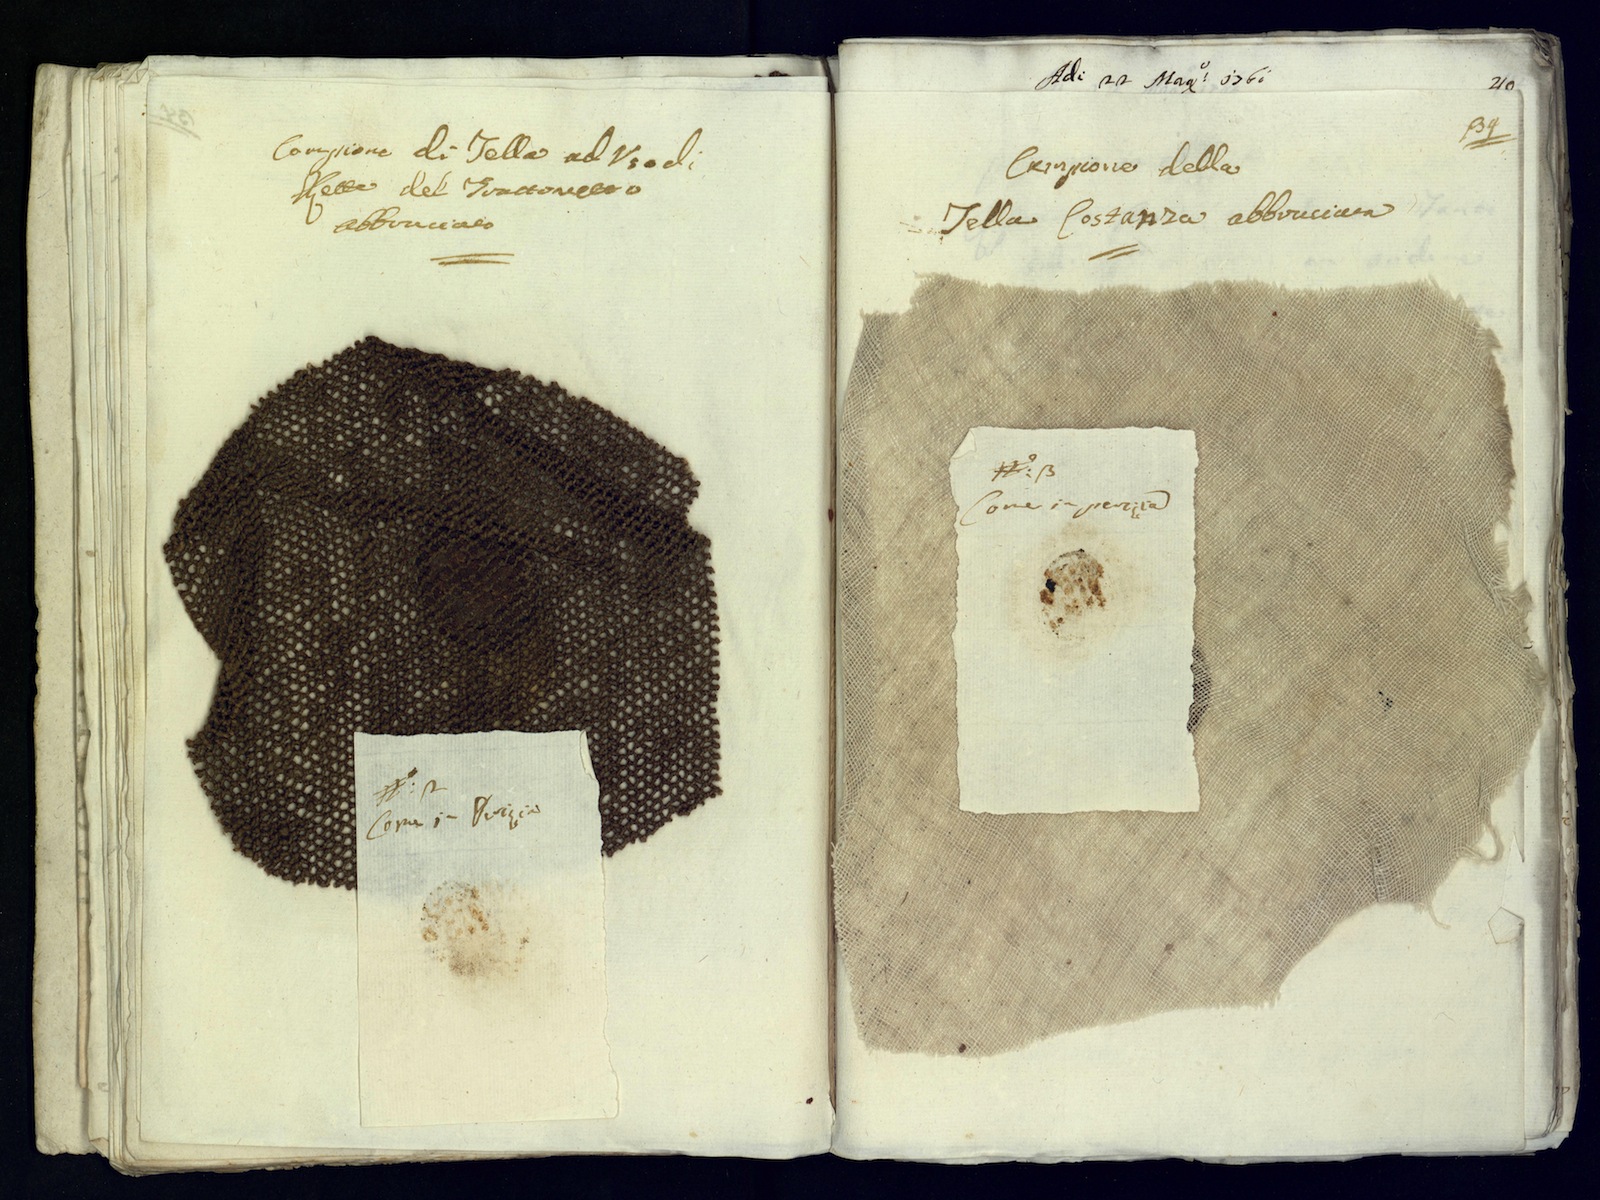 Campione di Tella ad Uso di
Rette del Trattonetto
abbrunciato
No: 2
Come in Perizia
Adi 22 Mago: 1761
40
34
Campione della
Tella Costanza abbrunciata
No: 3
Come in perizia